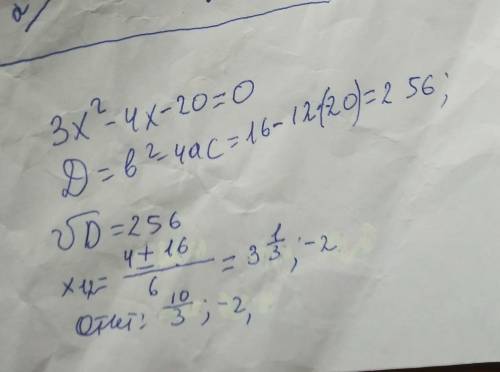 a)
3x² - 4x - 20 = 0
D = b² - 4ac = 16 - 12·(-20) = 256;
√D = 256
x₁,₂ = (4 ± 16)/6 = 3 1/3; -2
Ответ: 10/3; -2,